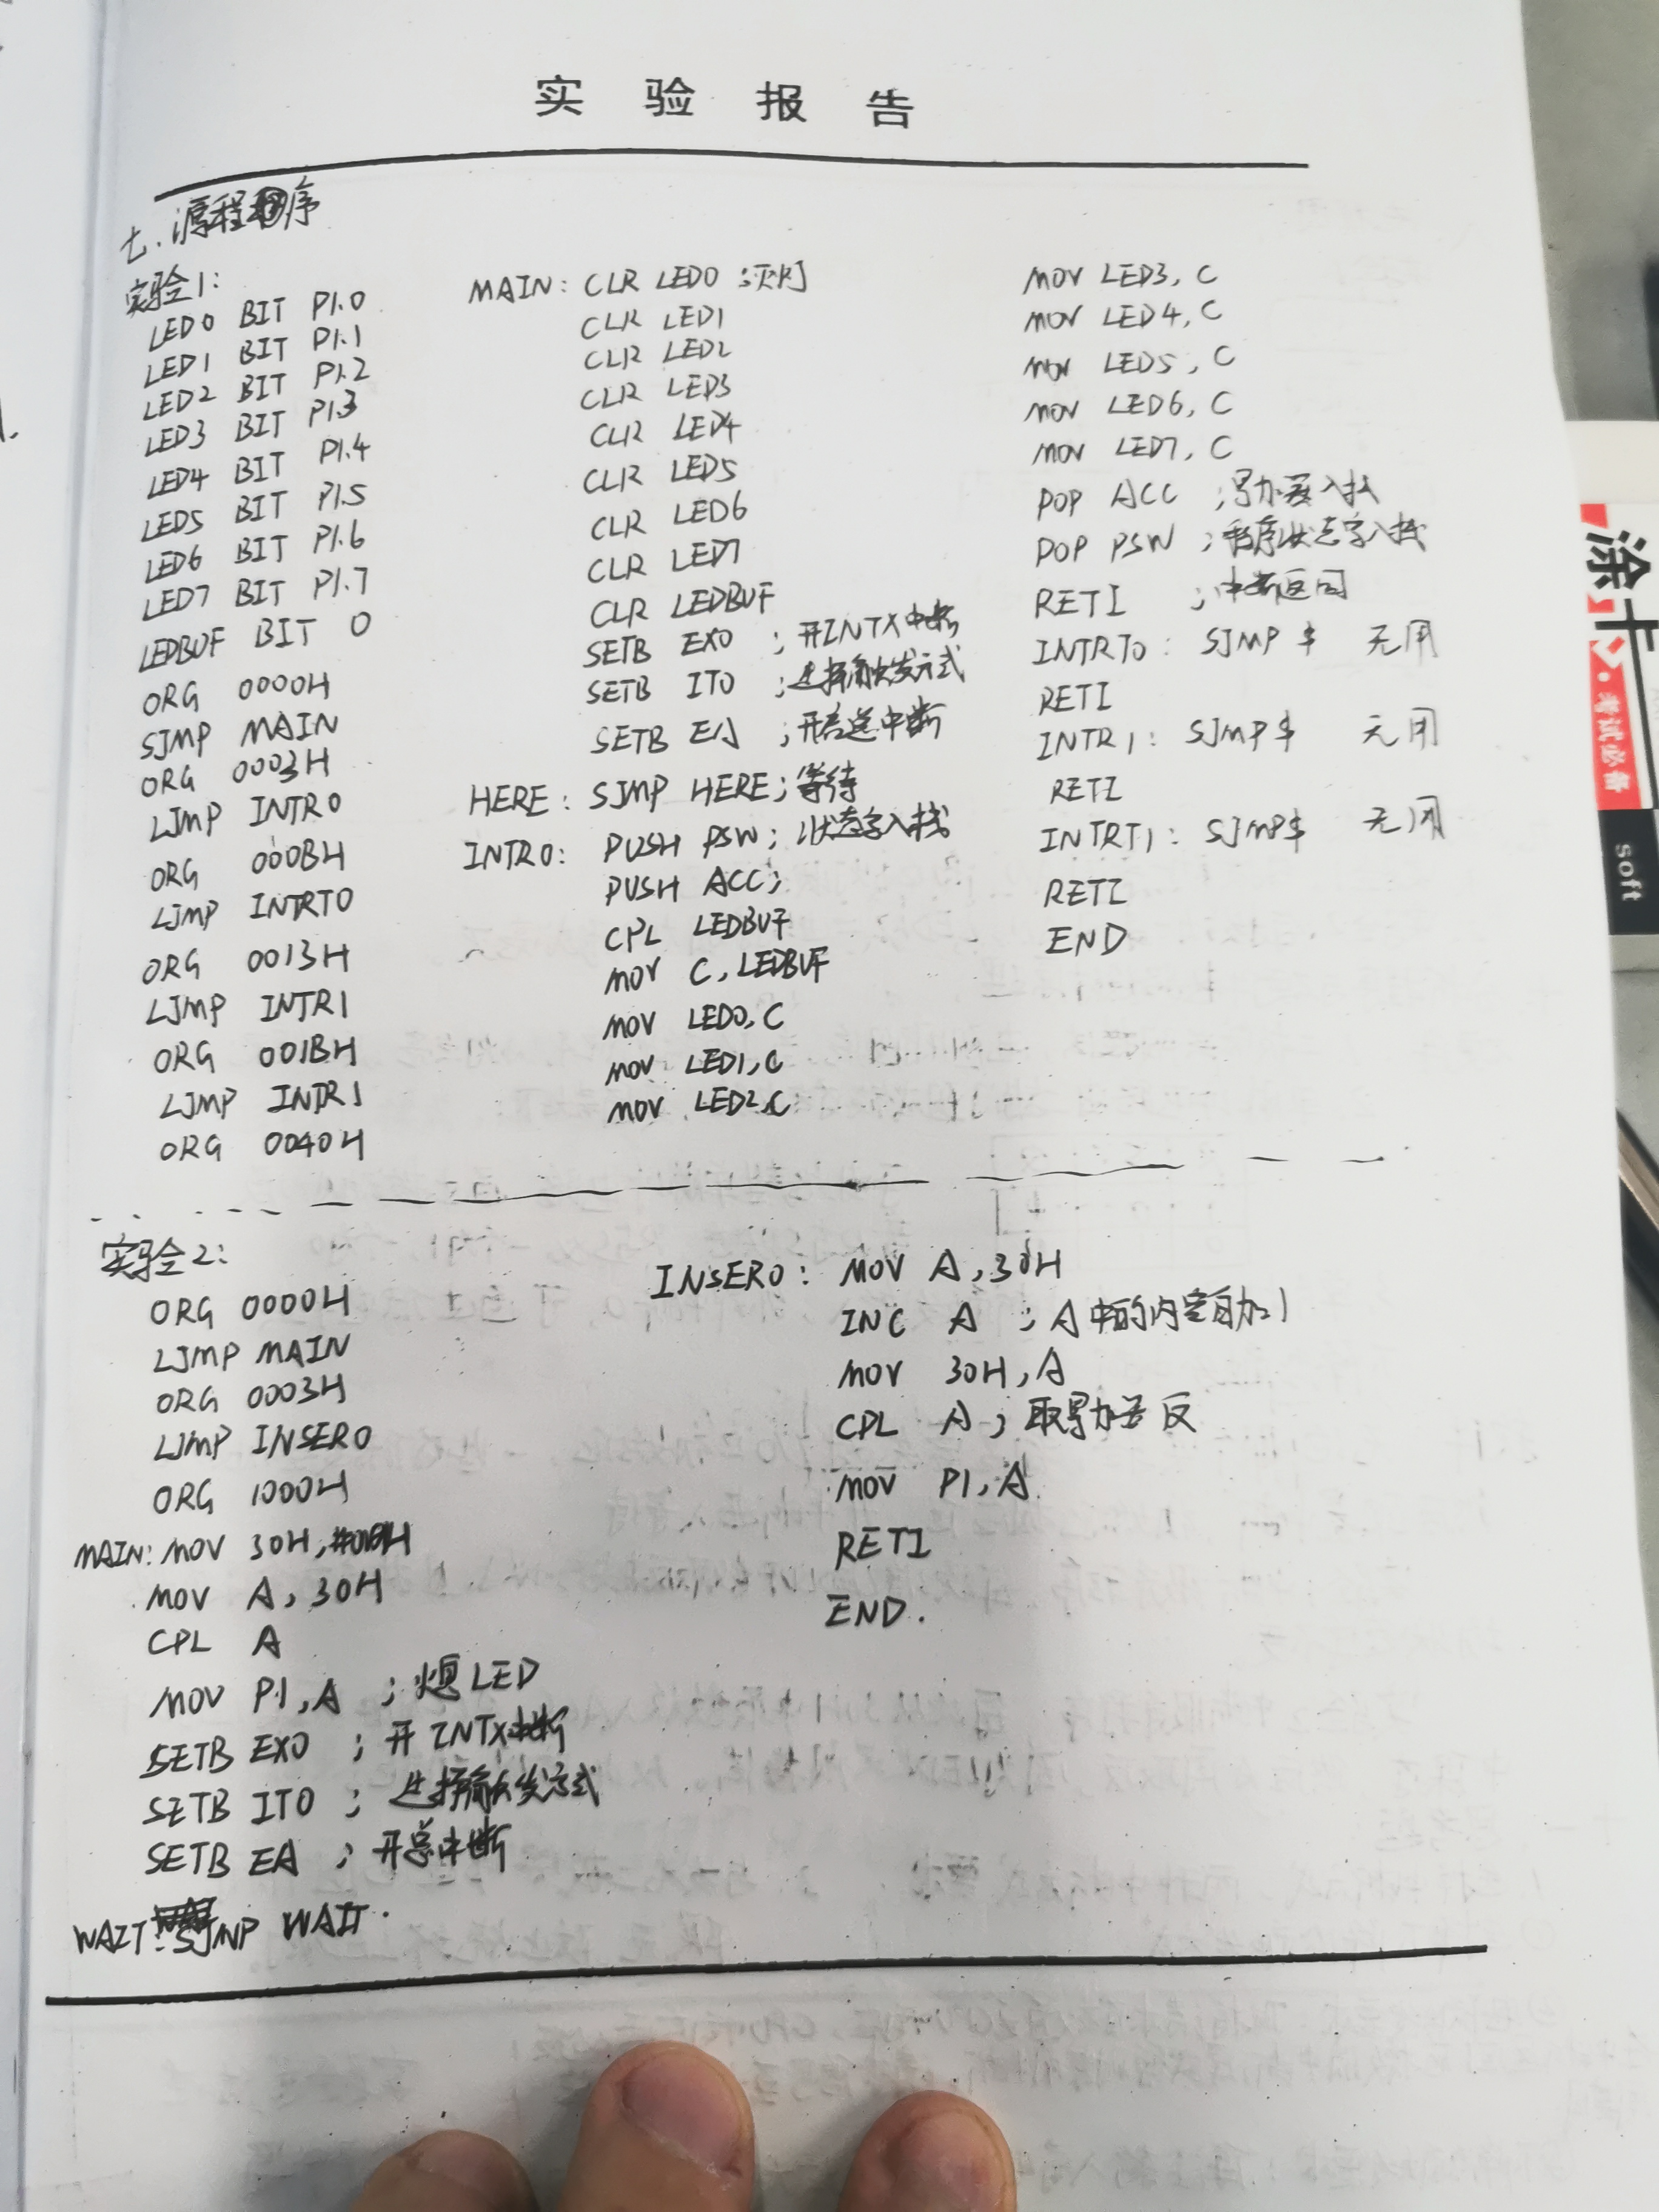 实验报告
七.源程序
实验1:
LED0 BIT P1.0
LED1 BIT P1.1
LED2 BIT P1.2
LED3 BIT P1.3
LED4 BIT P1.4
LED5 BIT P1.5
LED6 BIT P1.6
LED7 BIT P1.7
LEDBUF BIT 0
ORG 0000H
SJMP MAIN
ORG 0003H
LJMP INTR0
ORG 000BH
LJMP INTRT0
ORG 0013H
LJMP INTR1
ORG 001BH
LJMP INTR1
ORG 0040H
MAIN: CLR LED0 ;灭灯
CLR LED1
CLR LED2
CLR LED3
CLR LED4
CLR LED5
CLR LED6
CLR LED7
CLR LEDBUF
SETB EX0 ;开INTX中断
SETB IT0 ;选择触发方式
SETB EA ;开总中断
HERE: SJMP HERE;等待
INTR0: PUSH PSW;状态字入栈
PUSH ACC;
CPL LEDBUF
MOV C,LEDBUF
MOV LED0,C
MOV LED1,C
MOV LED2,C
MOV LED3,C
MOV LED4,C
MOV LED5,C
MOV LED6,C
MOV LED7,C
POP ACC ;累加器入栈
POP PSW ;程序状态字入栈
RETI ;中断返回
INTRT0: SJMP $ 无用
RETI
INTR1: SJMP $ 无用
RETI
INTRT1: SJMP $ 无用
RETI
END
实验2:
ORG 0000H
LJMP MAIN
ORG 0003H
LJMP INSER0
ORG 1000H
MAIN: MOV 30H,
MOV A,30H
CPL A
MOV P1,A ;熄LED
SETB EX0 ;开INTX中断
SETB IT0 ;选择触发方式
SETB EA ;开总中断
WAIT: SJMP WAIT.
INSER0: MOV A,30H
INC A ;A中的内容自加1
MOV 30H,A
CPL A;取累加器反
MOV P1,A
RETI
END.
涂卡
考试必备
soft